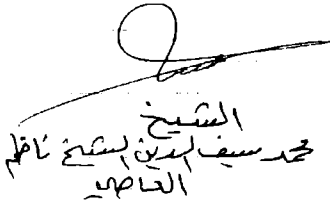 الشيخ
محمد سيف الدين الشيخ ناظم
العاصي